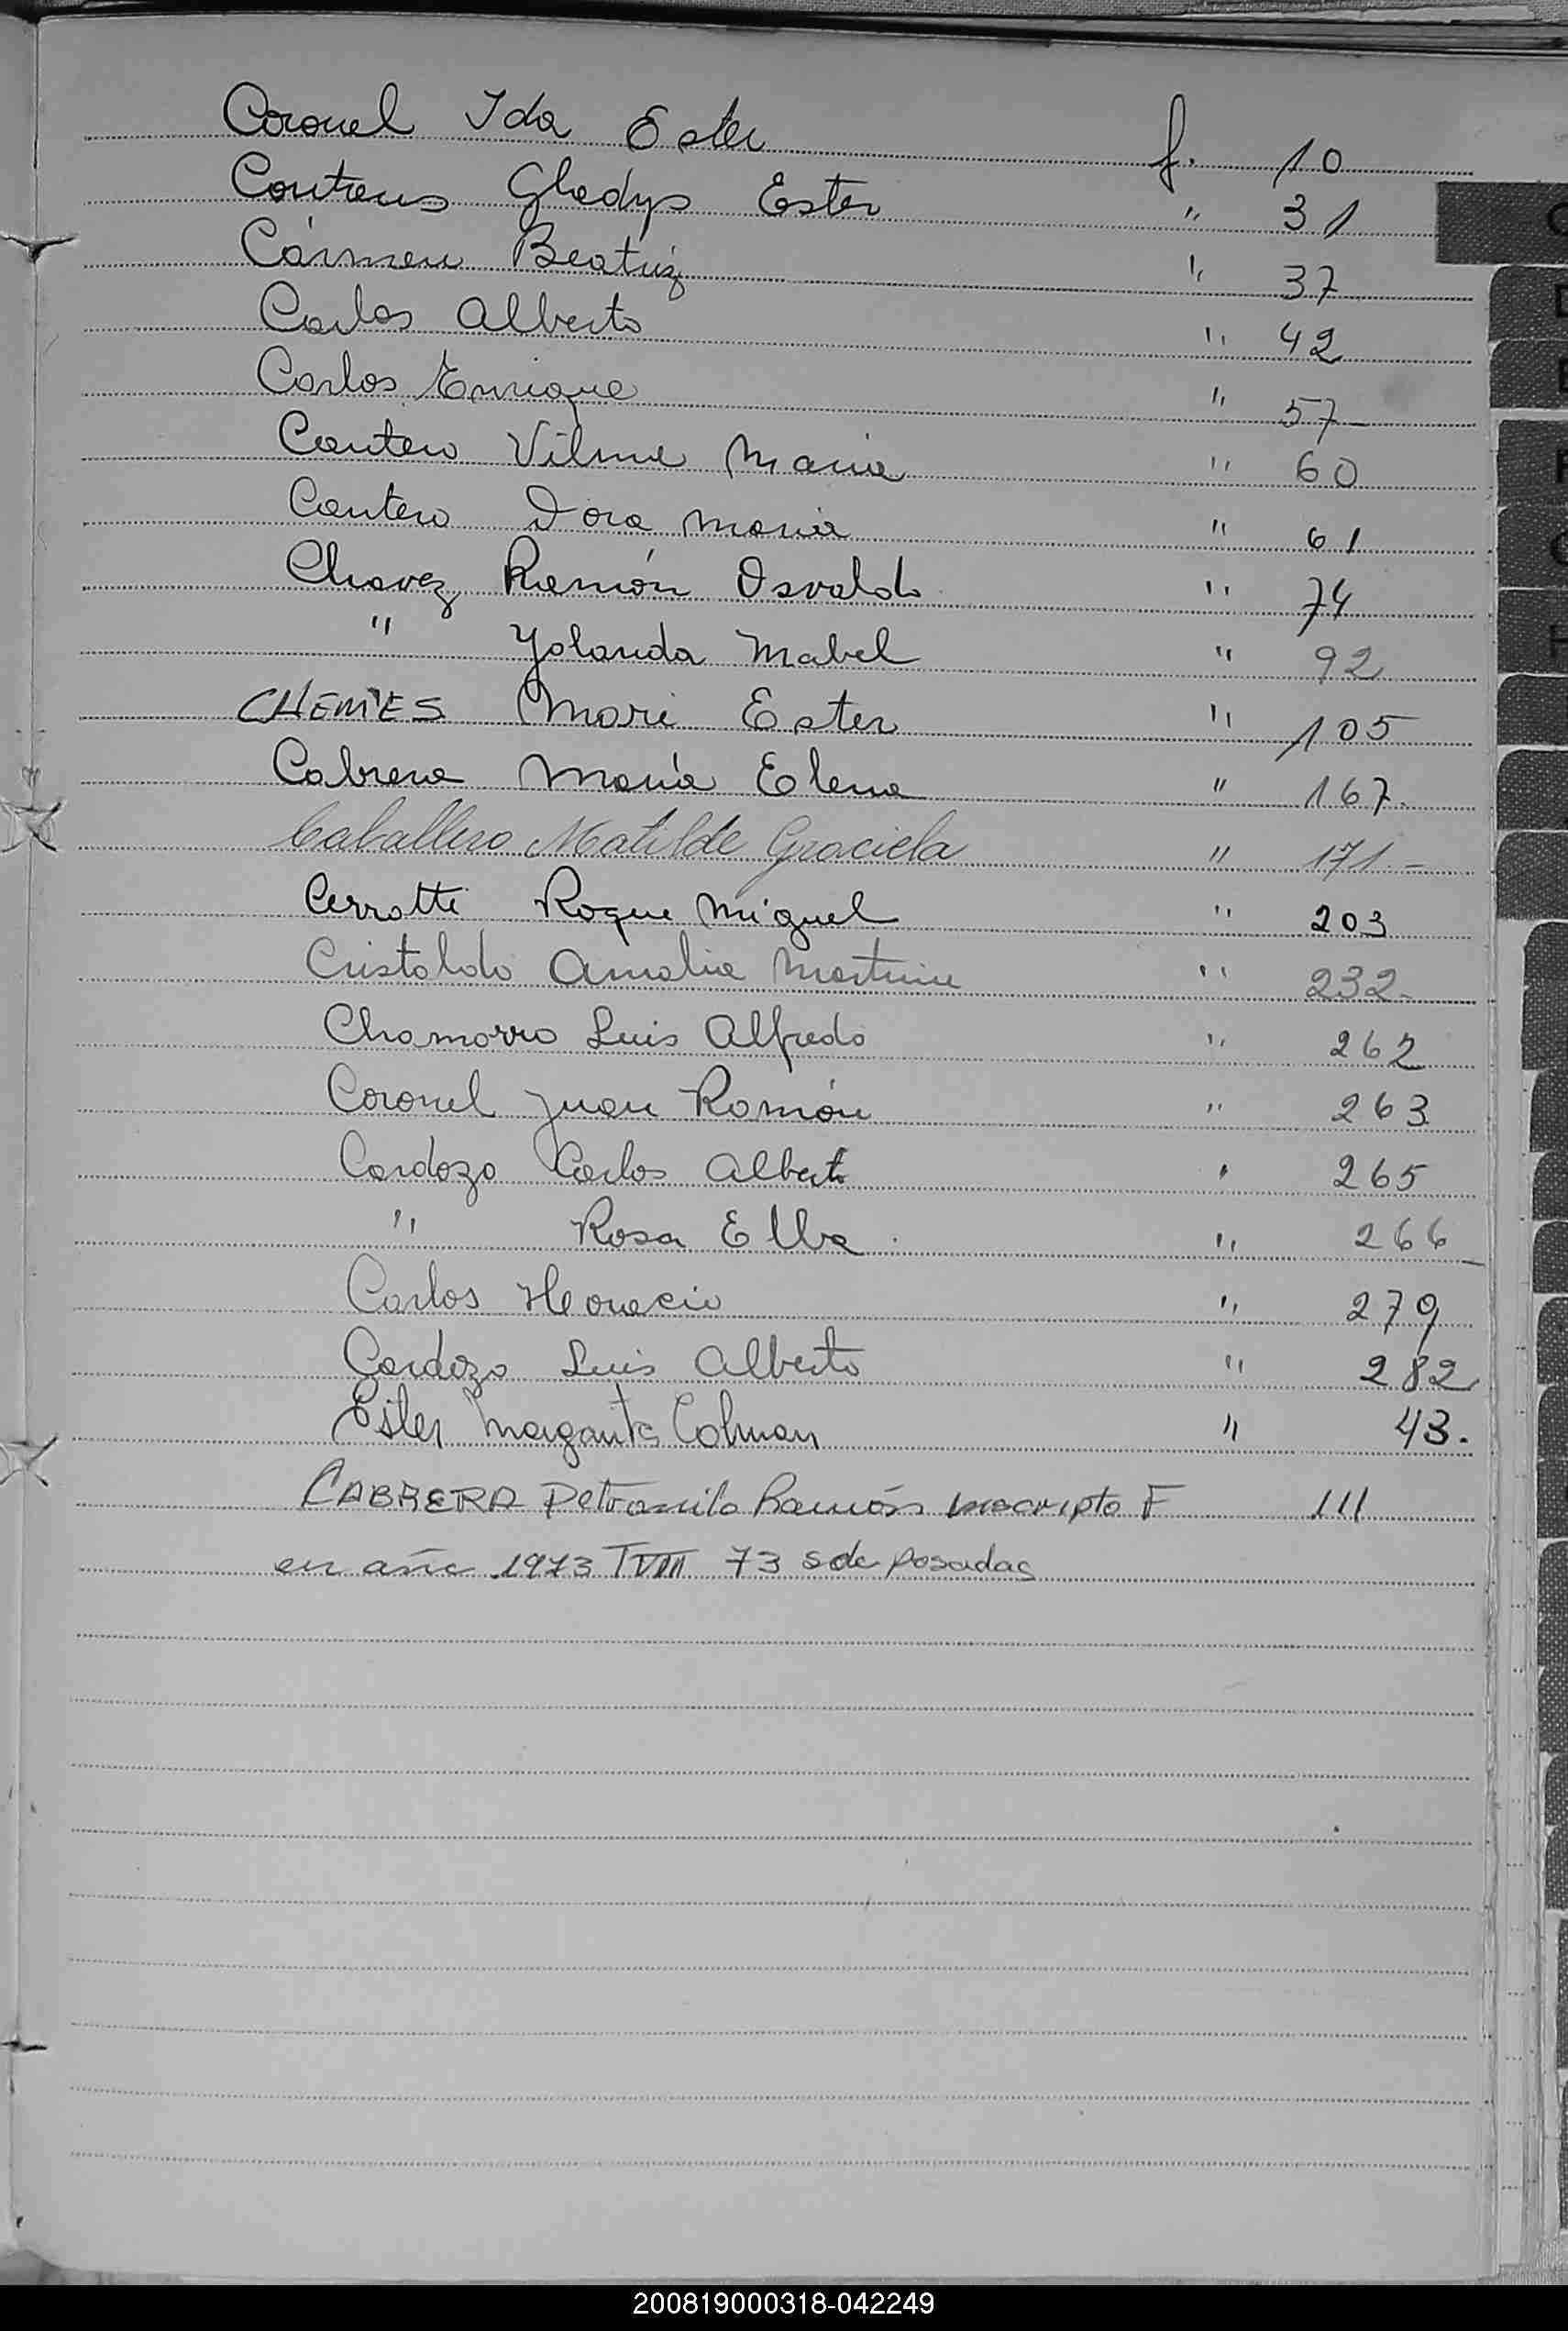 Coronel Ida Ester f. 10
Contreras Gladys Ester " 31
Cármen Beatriz " 37
Carlos Alberto " 42
Carlos Enrique " 57
Cantero Vilma Maria " 60
Cantero Dora Maria " 61
Chavez Ramón Osvaldo " 74
" Yolanda Mabel " 92
CHEMES Mari Ester " 105
Cabrera María Elena " 167
Caballero Matilde Graciela " 171
Cerrotti Roque Miguel " 203
Cristaldo Amalia Martina " 232
Chamorro Luis Alfredo " 262
Coronel Juan Ramón " 263
Cardozo Carlos Alberto " 265
" Rosa Elba " 266
Carlos Horacio " 279
Cardozo Luis Alberto " 282
Ester Margarita Colman " 43.
CABRERA Petronilo Ramón inscripto F 111
en año 1973 TVIII 73 s de posadas
C
D
E
F
G
H
200819000318-042249